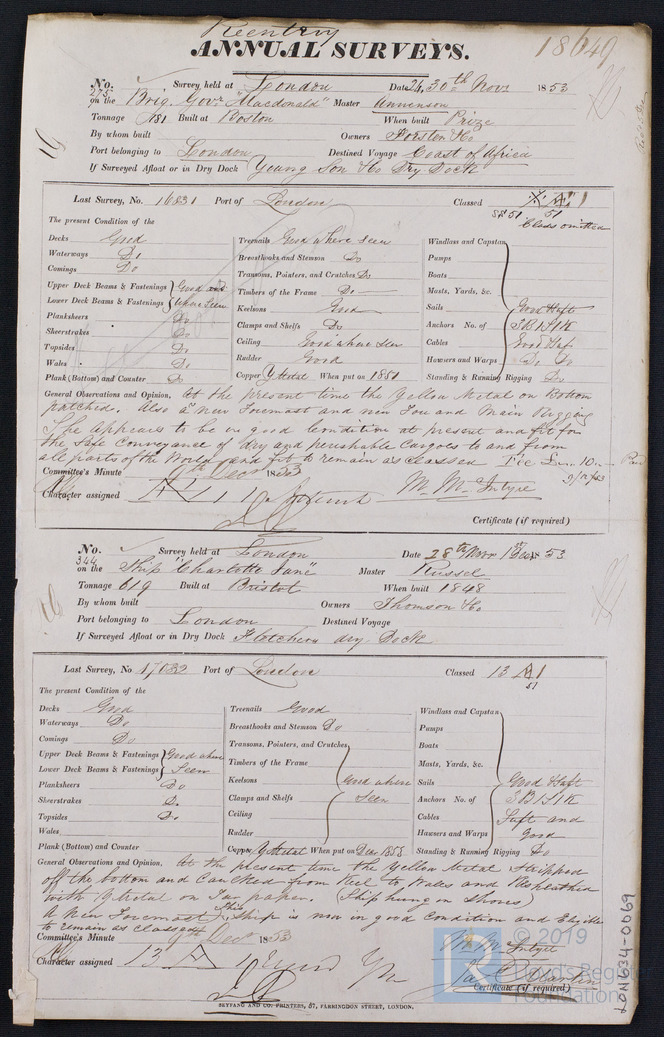 Reentry
ANNUAL SURVEYS. 18649
No. 275 Survey held at London Date 26, 30th Novr 1853
on the Brig. Govr "Macdonald" Master
Tonnage 181 Built at Boston When built Prize
By whom built Owners Forster & Co
Port belonging to London Destined Voyage Coast of Africa
If Surveyed Afloat or in Dry Dock Young Son & Co Dry Dock
Last Survey, No. 16831 Port of London Classed
51
Class omitted
The present Condition of the
Decks Good
Waterways Do
Comings Do
Upper Deck Beams & Fastenings Good and
Lower Deck Beams & Fastenings where Seen
Planksheers Do
Sheerstrakes Do
Topsides Do
Wales Do
Plank (Bottom) and Counter Do
Treenails Good where Seen
Breasthooks and Stemson Do
Transoms, Pointers, and Crutches Do
Timbers of the Frame Do
Keelsons Good
Clamps and Shelfs Do
Ceiling Good where Seen
Rudder Good
Copper Y Metal When put on 1851
Windlass and Capstan
Pumps
Boats
Masts, Yards, &c.
Sails Good & Saft
Anchors No. of 3 B 1 S 1 K
Cables Good & Saf
Hawsers and Warps Do Do
Standing & Running Rigging Do
General Observations and Opinion, At the present time the Yellow Metal on Bottom
patched. Also a new Foremast and new Fore and Main Rigging
She appears to be in good Condition at present and fit for
the Safe Conveyance of dry and perishable Cargoes to and from
all parts of the World and fit to remain as classed Fee £ 10 Paid
Committee's Minute 9th Decr 1853
Character assigned
M. McIntyre
Certificate (if required)
No. 344 Survey held at London Date 28th Novr 1st Decr 1853
on the Ship "Charlotte Jane" Master Russel
Tonnage 619 Built at Bristol When built 1848
By whom built Owners Thomson & Co
Port belonging to London Destined Voyage
If Surveyed Afloat or in Dry Dock Fletchers dry Dock
Last Survey, No Port of London Classed 13 A 1
51
The present Condition of the
Decks Good
Waterways Do
Comings Do
Upper Deck Beams & Fastenings Good where
Lower Deck Beams & Fastenings Seen
Planksheers Do
Sheerstrakes Do
Topsides Do
Wales
Plank (Bottom) and Counter
Treenails Good
Breasthooks and Stemson Do
Transoms, Pointers, and Crutches
Timbers of the Frame
Keelsons Good where
Clamps and Shelfs Seen
Ceiling
Rudder
Copper Y Metal When put on Decr 1853
Windlass and Capstan
Pumps
Boats
Masts, Yards, &c.
Sails Good & Saft
Anchors No. of 3 B 1 S 1 K
Cables Saft and
Hawsers and Warps Good
Standing & Running Rigging Do
General Observations and Opinion, At the present time the Yellow Metal stripped
off the bottom and Caulked from Keel to Wales and Resheathed
with Y Metal on Tar paper. (Ship hung in Shores)
A New Foremast, This Ship is now in good Condition and Eligible
to remain as classed
Committee's Minute 9th Decr 1853
Character assigned 13 A 1
M. McIntyre
Jas Martin
Certificate (if required)
SKYFANG AND CO. PRINTERS, 57, FARRINGDON STREET, LONDON.
LON634-0069
© 2019
Lloyd's Register
Foundation